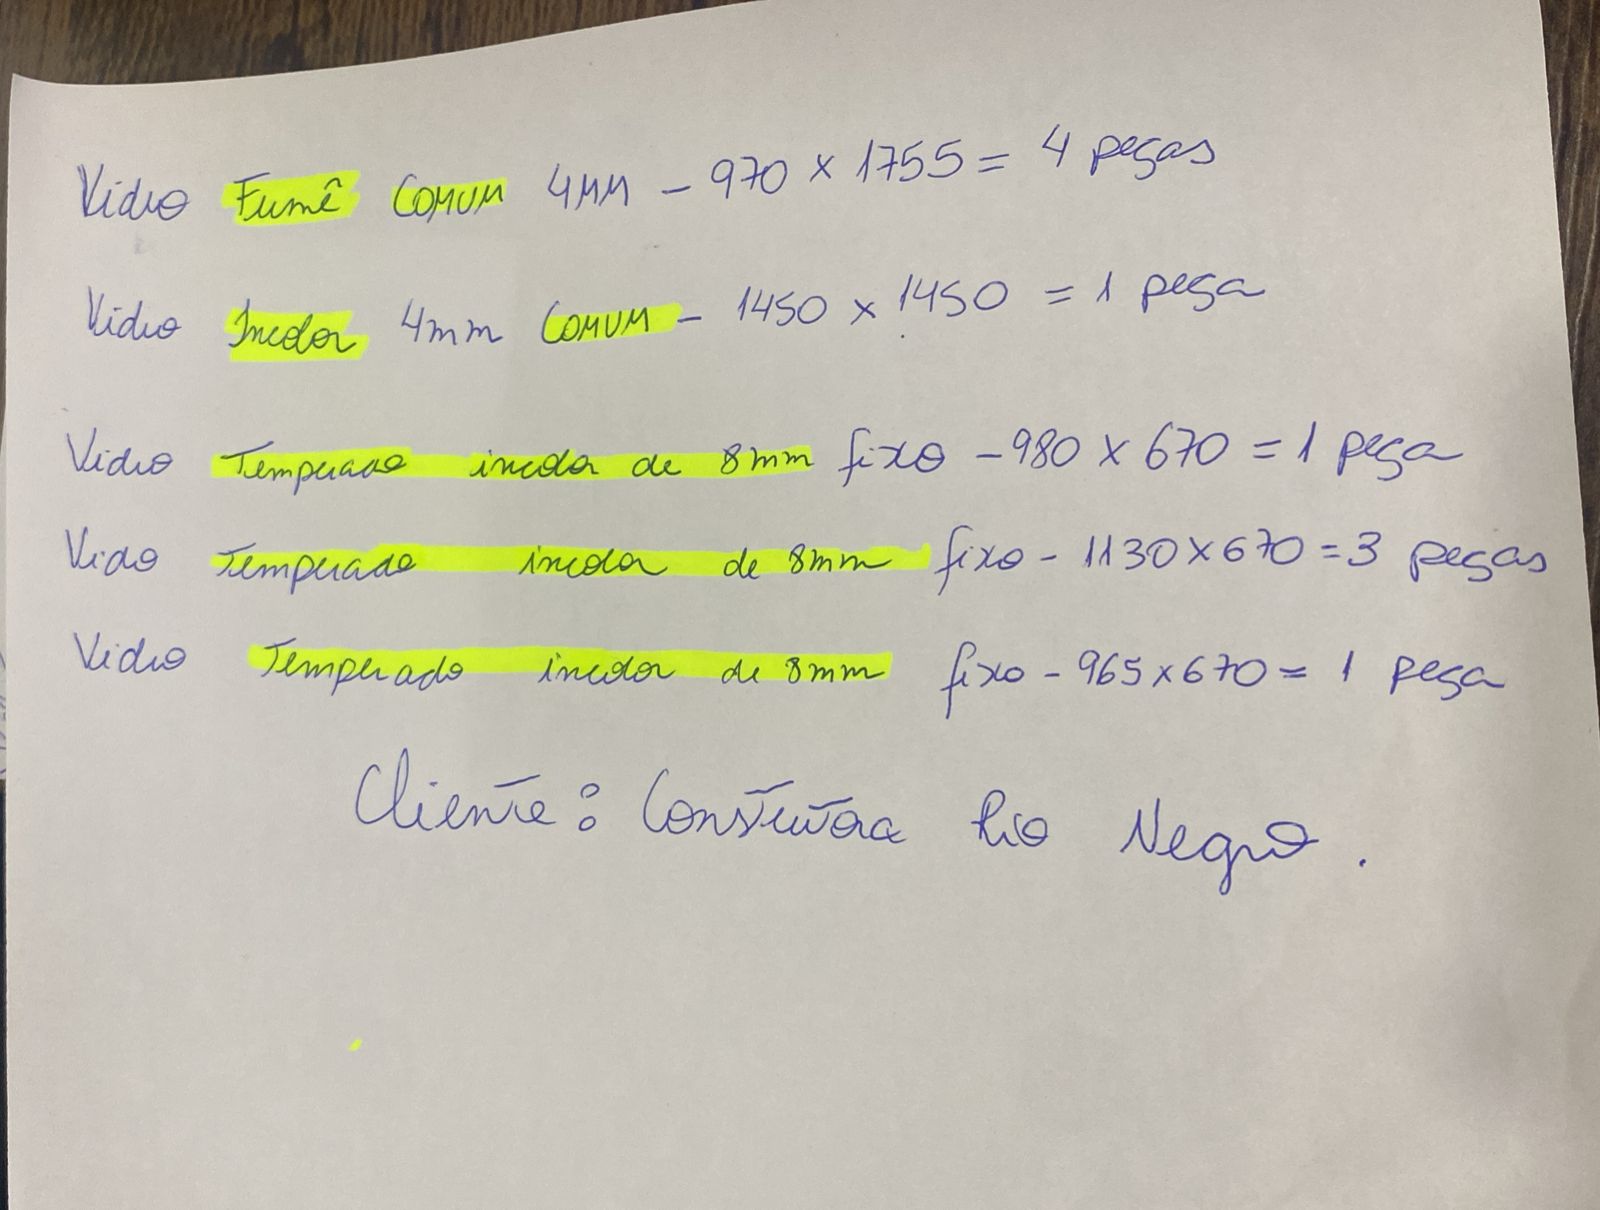 Vidro Fumê COMUM 4MM - 970 x 1755 = 4 peças
Vidro Incolor 4mm COMUM - 1450 x 1450 = 1 peça
Vidro Temperado incolor de 8mm fixo - 980 x 670 = 1 peça
Vidro Temperado incolor de 8mm fixo - 1130 x 670 = 3 peças
Vidro Temperado incolor de 8mm fixo - 965 x 670 = 1 peça
Cliente: Construtora Rio Negro.